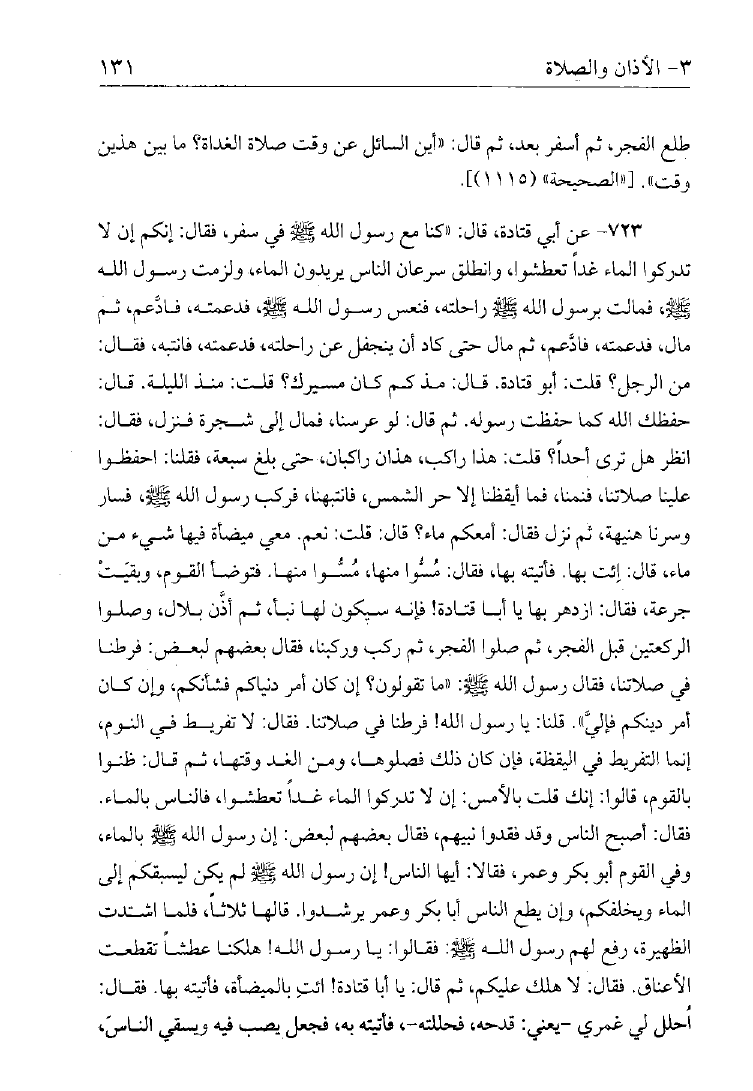 ٣- الأذان والصلاة ١٣١
طلع الفجر، ثم أسفر بعد، ثم قال: «أين السائل عن وقت صلاة الغداة؟ ما بين هذين
وقت». [«الصحيحة» (١١١٥)].
٧٢٣- عن أبي قتادة، قال: «كنا مع رسول الله ﷺ في سفر، فقال: إنكم إن لا
تدركوا الماء غداً تعطشوا، وانطلق سرعان الناس يريدون الماء، ولزمت رسول الله
ﷺ، فمالت برسول الله ﷺ راحلته، فنعس رسول الله ﷺ، فدعمته، فادَّعم، ثم
مال، فدعمته، فادَّعم، ثم مال حتى كاد أن ينجفل عن راحلته، فدعمته، فانتبه، فقال:
من الرجل؟ قلت: أبو قتادة. قال: مذ كم كان مسيرك؟ قلت: منذ الليلة. قال:
حفظك الله كما حفظت رسوله. ثم قال: لو عرسنا، فمال إلى شجرة فنزل، فقال:
انظر هل ترى أحداً؟ قلت: هذا راكب، هذان راكبان، حتى بلغ سبعة، فقلنا: احفظوا
علينا صلاتنا، فنمنا، فما أيقظنا إلا حر الشمس، فانتبهنا، فركب رسول الله ﷺ، فسار
وسرنا هنيهة، ثم نزل فقال: أمعكم ماء؟ قال: قلت: نعم. معي ميضأة فيها شيء من
ماء، قال: إئت بها. فأتيته بها، فقال: مُسُّوا منها، مُسُّوا منها. فتوضأ القوم، وبقيَتْ
جرعة، فقال: ازدهر بها يا أبا قتادة! فإنه سيكون لها نبأ، ثم أذَّن بلال، وصلوا
الركعتين قبل الفجر، ثم صلوا الفجر، ثم ركب وركبنا، فقال بعضهم لبعض: فرطنا
في صلاتنا، فقال رسول الله ﷺ: «ما تقولون؟ إن كان أمر دنياكم فشأنكم، وإن كان
أمر دينكم فإليَّ». قلنا: يا رسول الله! فرطنا في صلاتنا. فقال: لا تفريط في النوم،
إنما التفريط في اليقظة، فإن كان ذلك فصلوها، ومن الغد وقتها، ثم قال: ظنوا
بالقوم، قالوا: إنك قلت بالأمس: إن لا تدركوا الماء غداً تعطشوا، فالناس بالماء.
فقال: أصبح الناس وقد فقدوا نبيهم، فقال بعضهم لبعض: إن رسول الله ﷺ بالماء،
وفي القوم أبو بكر وعمر، فقالا: أيها الناس! إن رسول الله ﷺ لم يكن ليسبقكم إلى
الماء ويخلفكم، وإن يطع الناس أبا بكر وعمر يرشدوا. قالها ثلاثاً، فلما اشتدت
الظهيرة، رفع لهم رسول الله ﷺ: فقالوا: يا رسول الله! هلكنا عطشاً تقطعت
الأعناق. فقال: لا هلك عليكم، ثم قال: يا أبا قتادة! ائتِ بالميضأة، فأتيته بها. فقال:
أحلل لي غمري -يعني: قدحه، فحللته-، فأتيته به، فجعل يصب فيه ويسقي الناسَ،